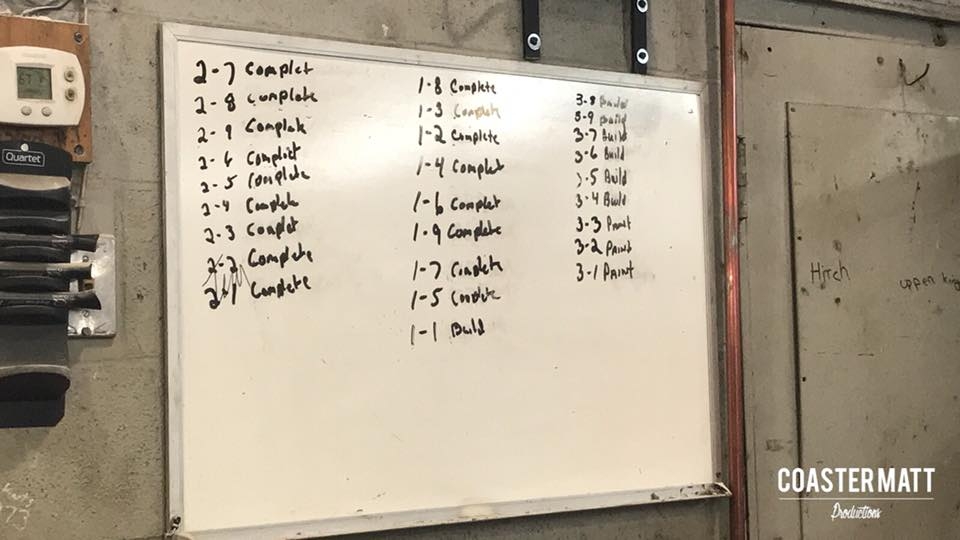 Quartet
2-7 Complet
2-8 Complete
2-9 Complete
2-6 Complict
2-5 Complete
2-4 Complete
2-3 Complet
2-2 Complete
2-1 Complete
1-8 Complete
1-3 Complete
1-2 Complete
1-4 Complet
1-6 Complet
1-9 Complete
1-7 Complete
1-5 Complete
1-1 Build
3-8
3-9
3-7 Build
3-6 Build
3-5 Build
3-4 Build
3-3 Praint
3-2 Paint
3-1 Paint
Hitch
upper
COASTERMATT
Productions